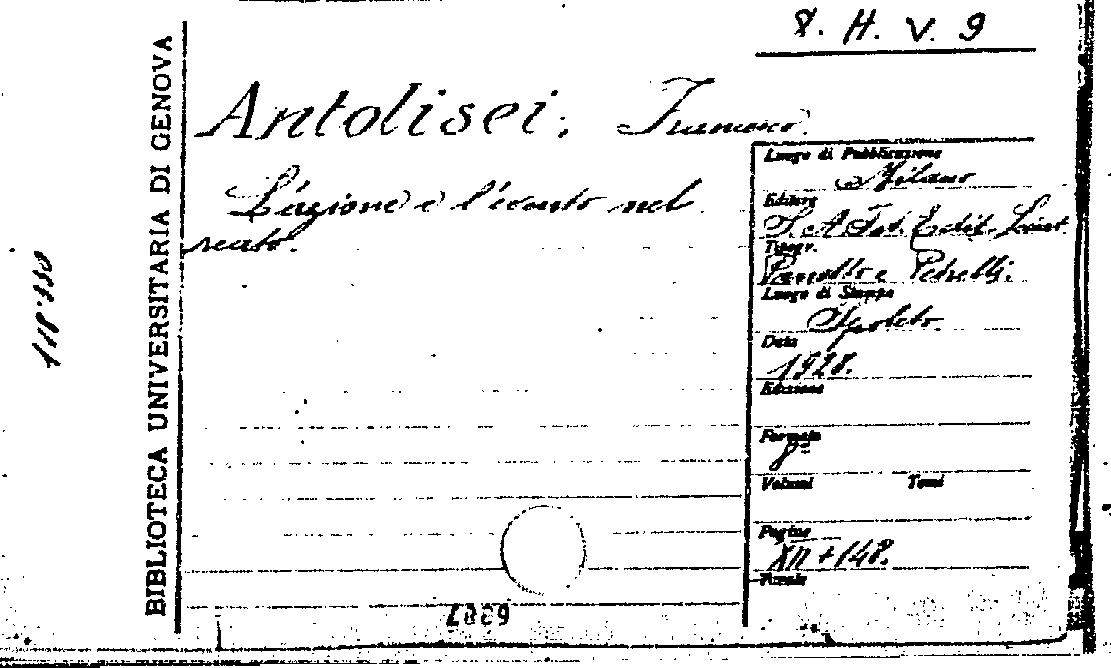 8. H. V. 9
BIBLIOTECA UNIVERSITARIA DI GENOVA
118.330
Antolisei, Francesco.
L'azione e l'evento nel
reato.
Luogo di Pubblicazione
Milano
Editore
S. A. Ist. Edit. Scient.
Tipogr.
Panetto e Petrelli.
Luogo di Stampa
Spoleto.
Data
1928.
Edizione
Formato
8º
Volumi Tomi
Pagine
XII + 148.
Tavole